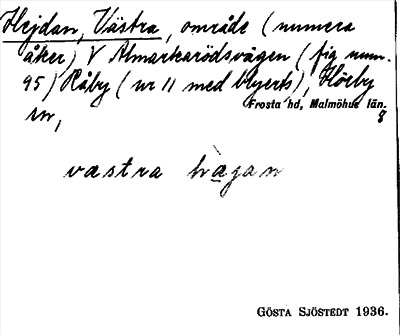 Hejdan, Västra, område (numera
åker) V Almarkarödsvägen (fig num.
95) Råby (nr 11 med blyerts), Hörby
Frosta hd, Malmöhus län.
sn, 8
västra hägan
GÖSTA SJÖSTEDT 1936.